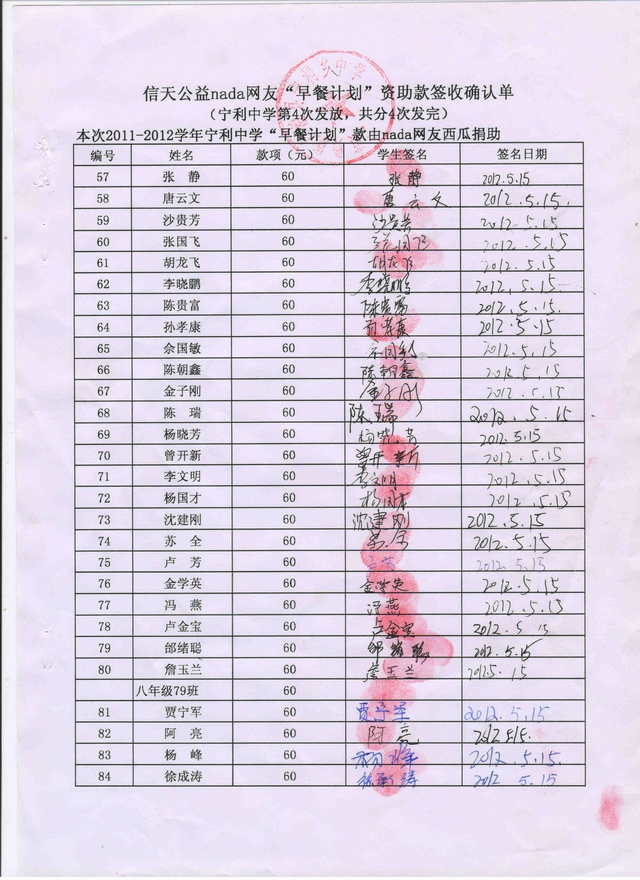 信天公益nada网友“早餐计划”资助款签收确认单
（宁利中学第4次发放，共分4次发完）
本次2011-2012学年宁利中学“早餐计划”款由nada网友西瓜捐助
编号 姓名 款项（元） 学生签名 签名日期
57 张 静 60 张静 2012.5.15
58 唐云文 60 唐云文 2012.5.15.
59 沙贵芳 60 沙贵芳 2012.5.15
60 张国飞 60 张国飞 2012.5.15
61 胡龙飞 60 胡龙飞 2012.5.15
62 李晓鹏 60 李晓鹏 2012.5.15
63 陈贵富 60 陈贵富 2012.5.15
64 孙孝康 60 孙孝康 2012.5.15
65 余国敏 60 2012.5.15
66 陈朝鑫 60 陈朝鑫 2012.5.15
67 金子刚 60 金子刚 2012.5.15
68 陈 瑞 60 陈瑞 2012.5.15
69 杨晓芳 60 杨晓芳 2012.5.15
70 曾开新 60 曾开新 2012.5.15
71 李文明 60 李文明 2012.5.15
72 杨国才 60 杨国才 2012.5.15
73 沈建刚 60 沈建刚 2012.5.15
74 苏 全 60 苏全 2012.5.15
75 卢 芳 60 卢芳 2012.5.15
76 金学英 60 金学英 2012.5.15
77 冯 燕 60 冯燕 2012.5.15
78 卢金宝 60 卢金宝 2012.5.15
79 邰绪聪 60 2012.5.15
80 詹玉兰 60 詹玉兰 2012.5.15
八年级79班 60
81 贾宁军 60 贾宁军 2012.5.15
82 阿 亮 60 阿亮 2012.5.15.
83 杨 峰 60 杨峰 2012.5.15.
84 徐成涛 60 2012 5.15